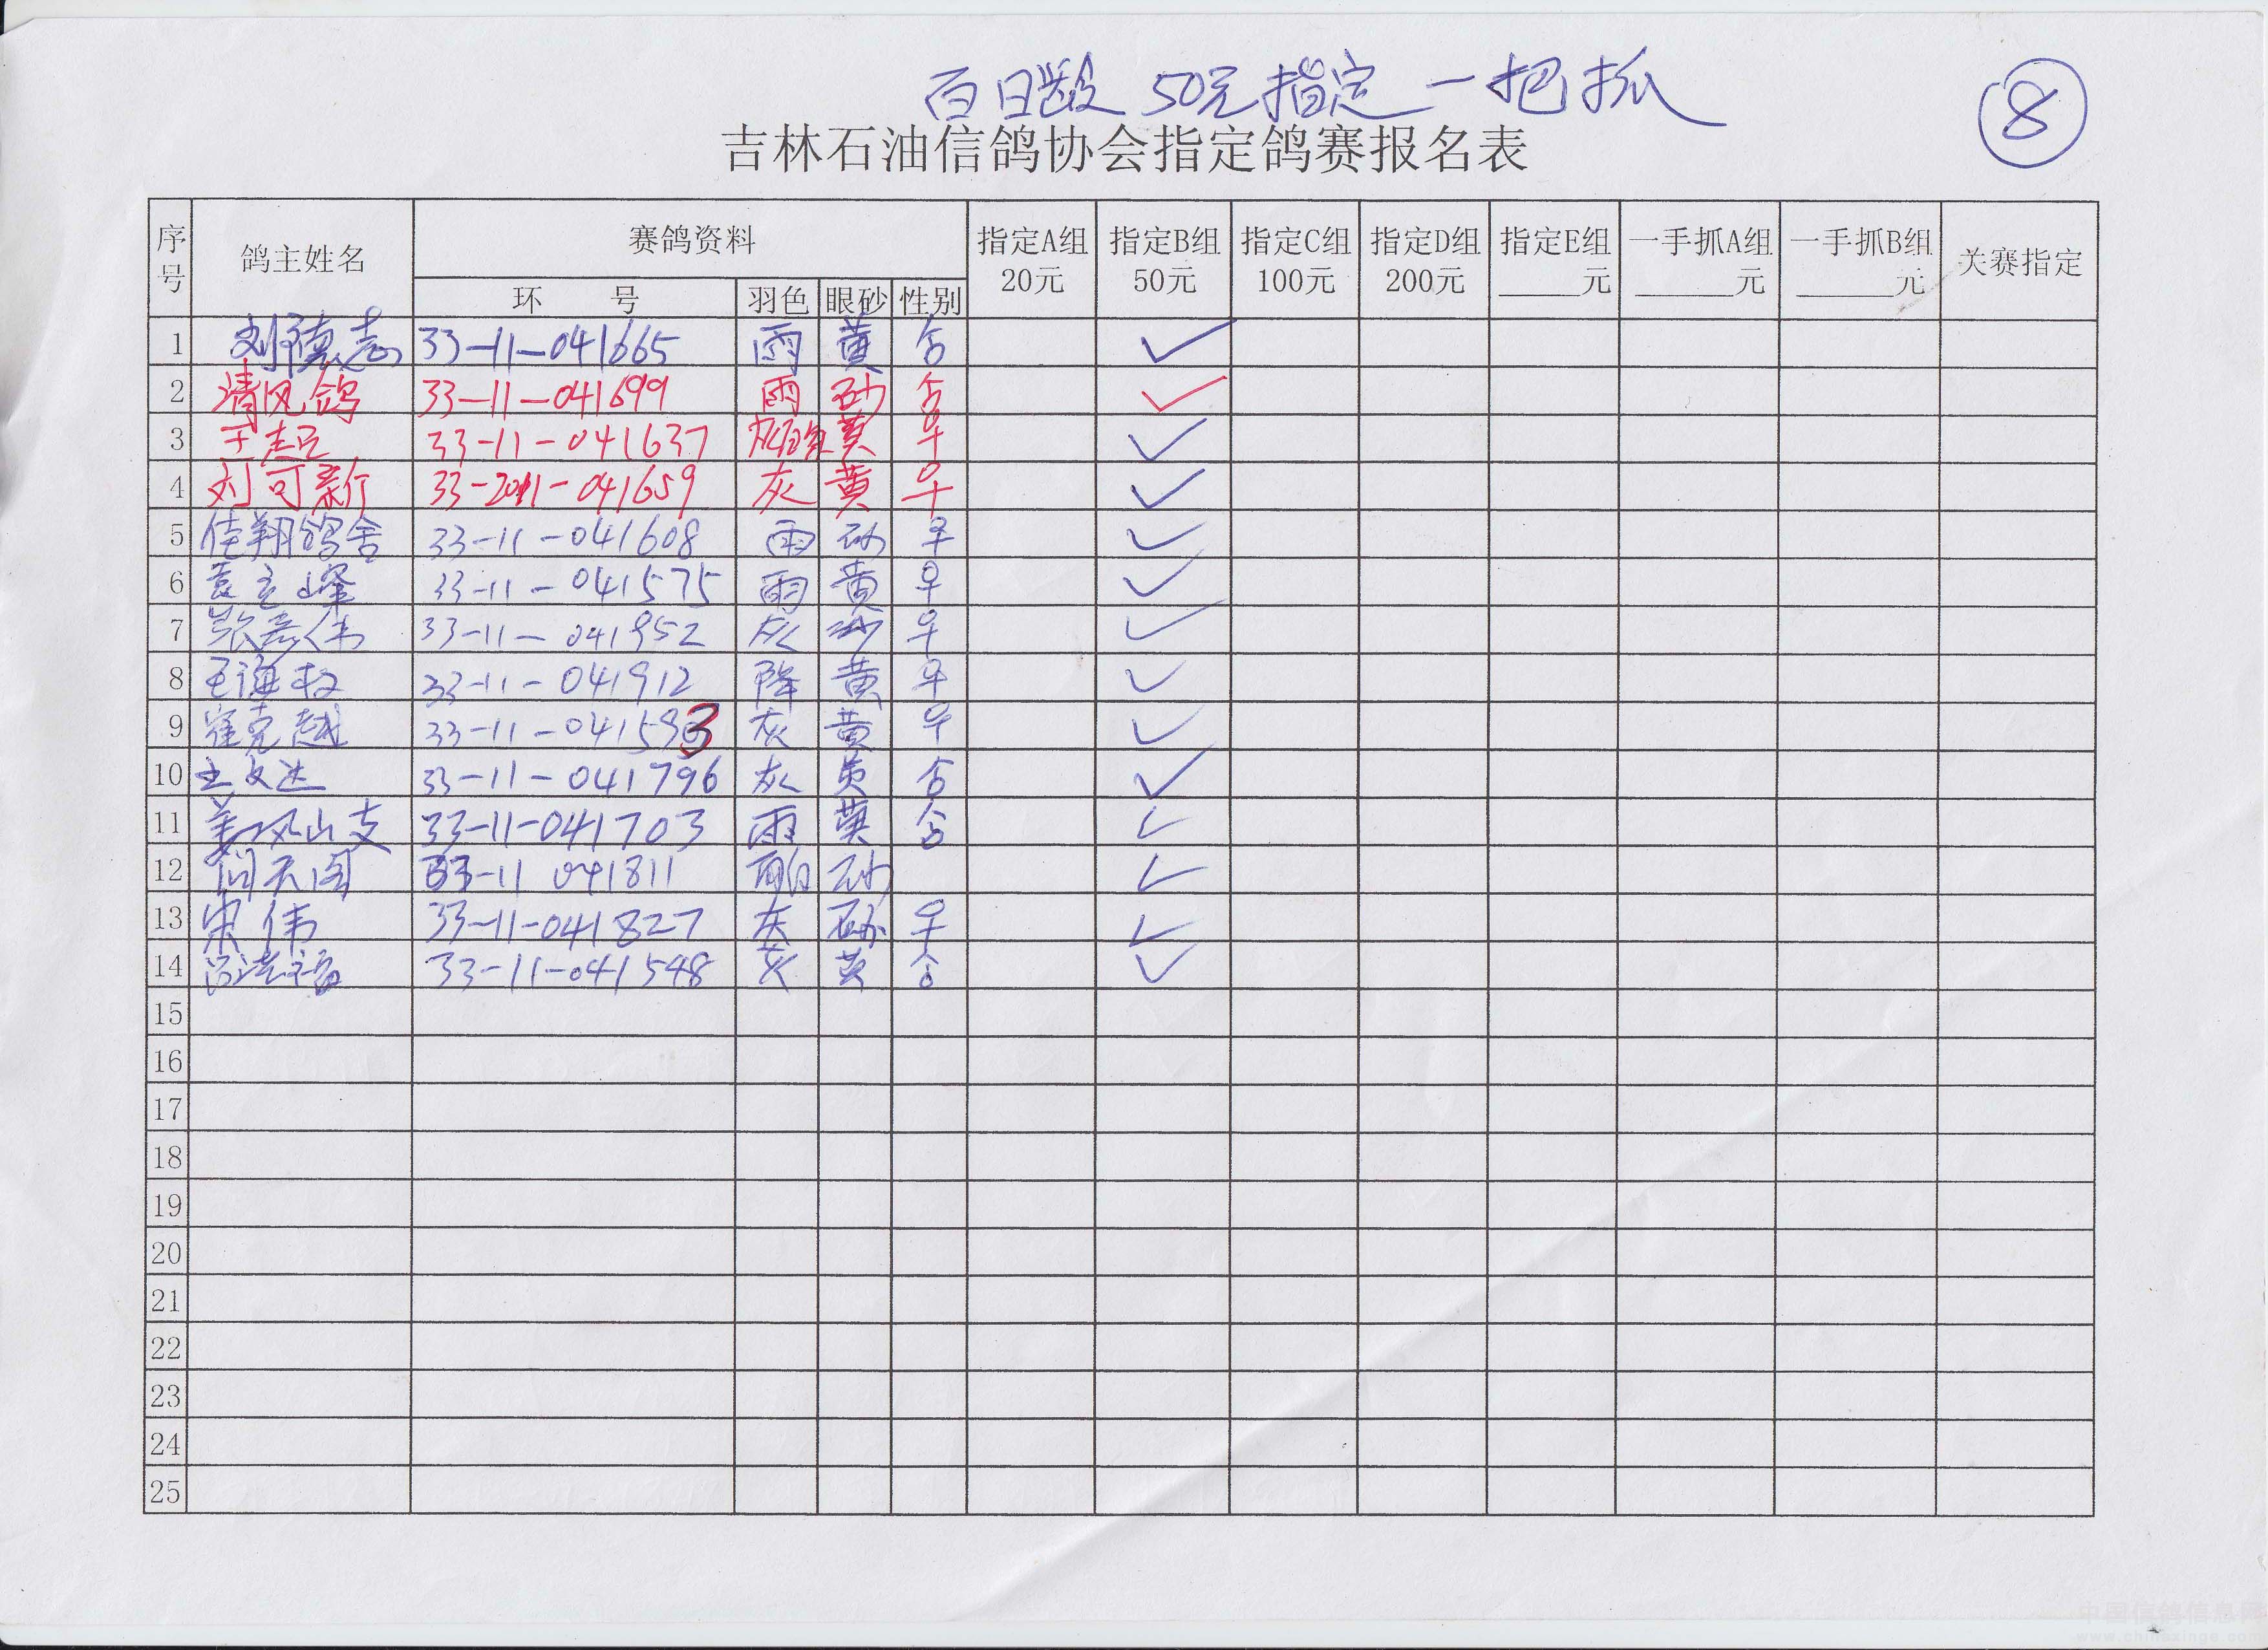 百日龄段 50元指定一把抓
⑧
吉林石油信鸽协会指定鸽赛报名表
序号 鸽主姓名 赛鸽资料 指定A组 20元 指定B组 50元 指定C组 100元 指定D组 200元 指定E组 ____元 一手抓A组 ____元 一手抓B组 ____元 关赛指定
环 号 羽色 眼砂 性别
1 刘德志 33-11-041665 雨 黄 ✓
2 清风鸽 33-11-041699 雨 砂 ✓
3 33-11-041637 黄 ♀ ✓
4 刘可新 33-2011-041659 灰 黄 ♀ ✓
5 佳翔鸽舍 33-11-041608 雨 砂 ♀ ✓
6 袁立峰 33-11-041575 雨 黄 ♀ ✓
7 33-11-041952 灰 砂 ♀ ✓
8 王海 33-11-041912 降 黄 ♀ ✓
9 崔克越 33-11-041593 灰 黄 ♀ ✓
10 王文达 33-11-041796 灰 黄 ✓
11 姜凤山 33-11-041703 雨 黄 ✓
12 33-11 041811 雨白 砂 ✓
13 宋伟 33-11-041827 灰 砂 ♀ ✓
14 33-11-041548 灰 黄 ✓
15
16
17
18
19
20
21
22
23
24
25
中国信鸽信息网
www.chinaxinge.com